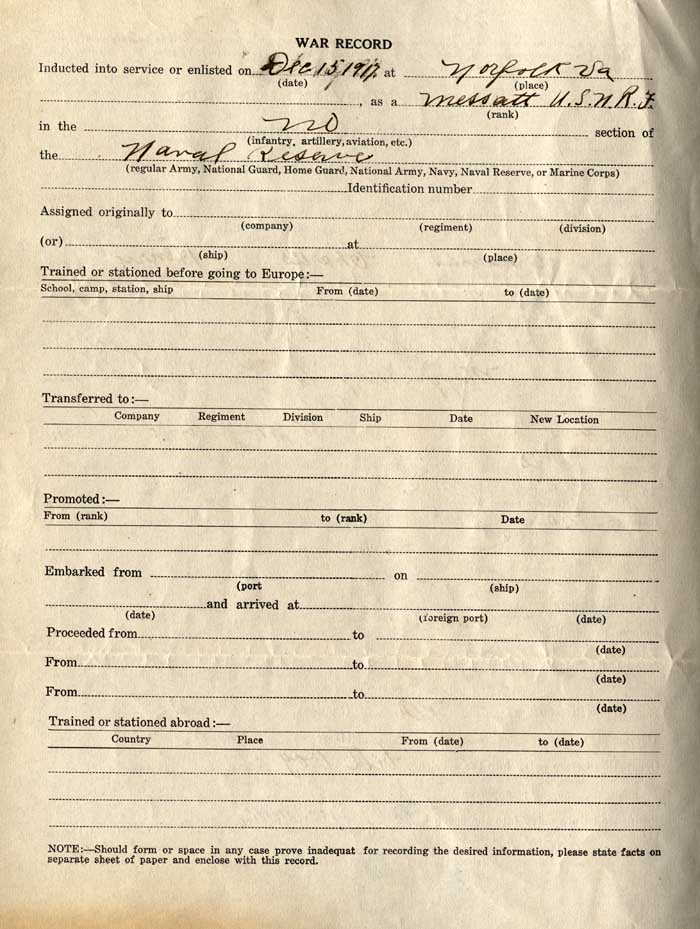 WAR RECORD
Inducted into service or enlisted on Dec. 15, 1917. at Norfolk Va
(date) (place)
, as a Mess att U.S.N.R.F.
(rank)
in the NO section of
(infantry, artillery, aviation, etc.)
the Naval Reserve
(regular Army, National Guard, Home Guard, National Army, Navy, Naval Reserve, or Marine Corps)
Identification number
Assigned originally to
(company) (regiment) (division)
(or) at
(ship) (place)
Trained or stationed before going to Europe:—
School, camp, station, ship From (date) to (date)
Transferred to:—
Company Regiment Division Ship Date New Location
Promoted:—
From (rank) to (rank) Date
Embarked from on
(port (ship)
and arrived at
(date) (foreign port) (date)
Proceeded from to
(date)
From to
(date)
From to
(date)
Trained or stationed abroad:—
Country Place From (date) to (date)
NOTE:—Should form or space in any case prove inadequat for recording the desired information, please state facts on
separate sheet of paper and enclose with this record.